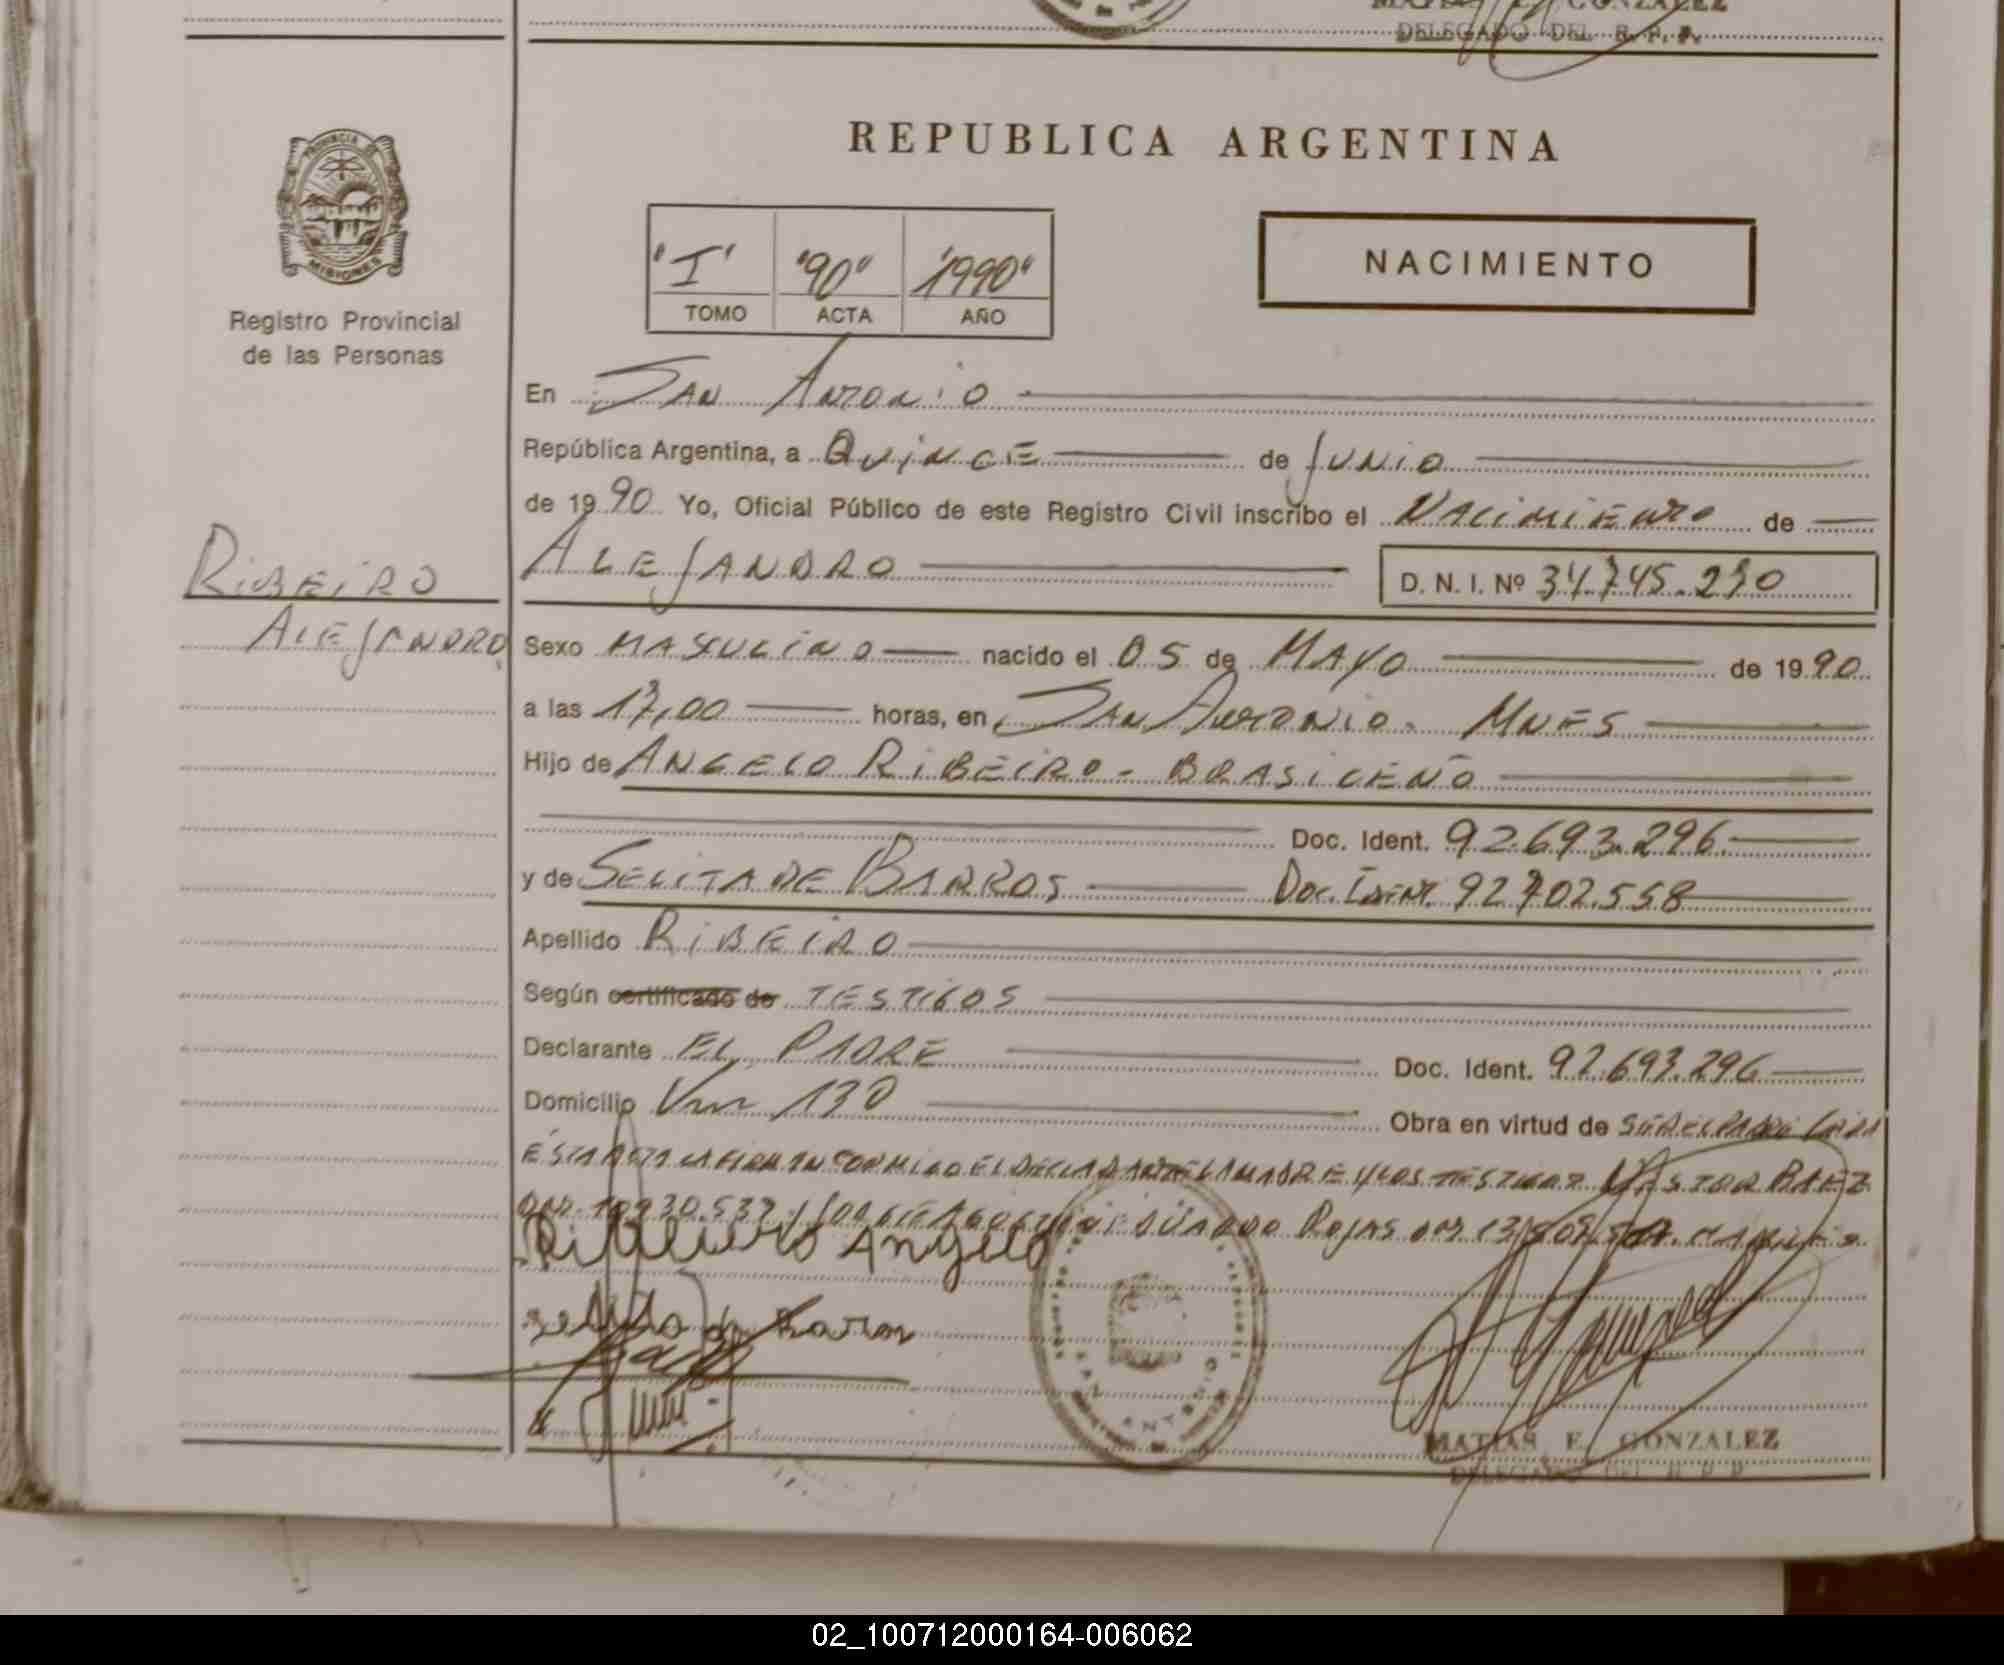 GONZALEZ
DELEGADO DEL R. P. P.
PROVINCIA DE
MISIONES
Registro Provincial
de las Personas
REPUBLICA ARGENTINA
"I" "90" "1990"
TOMO ACTA AÑO
NACIMIENTO
En San Antonio
República Argentina, a Quince de Junio
de 1990 Yo, Oficial Público de este Registro Civil inscribo el Nacimiento de
Ribeiro
Alejandro
ALEJANDRO D. N. I. Nº 34.745.230
Sexo MASCULINO nacido el 05 de MAYO de 1990
a las 17,00 horas, en San Antonio - MNES
Hijo de ANGELO RIBEIRO - BRASILEÑO
Doc. Ident. 92.693.296
y de SELITA DE BARROS Doc. Ident. 92.702.558
Apellido RIBEIRO
Según certificado de TESTIGOS
Declarante EL PADRE Doc. Ident. 92.693.296
Domicilio Km 130 Obra en virtud de
ESTA ACTA LA FIRMAN CONMIGO EL DECLARANTE LA MADRE Y LOS TESTIGOS NESTOR BAEZ
EDUARDO Rojas
Ribeiro Angelo
Selita de Barros
SAN ANTONIO
MATIAS E. GONZALEZ
DELEGADO DEL R. P. P.
02_100712000164-006062